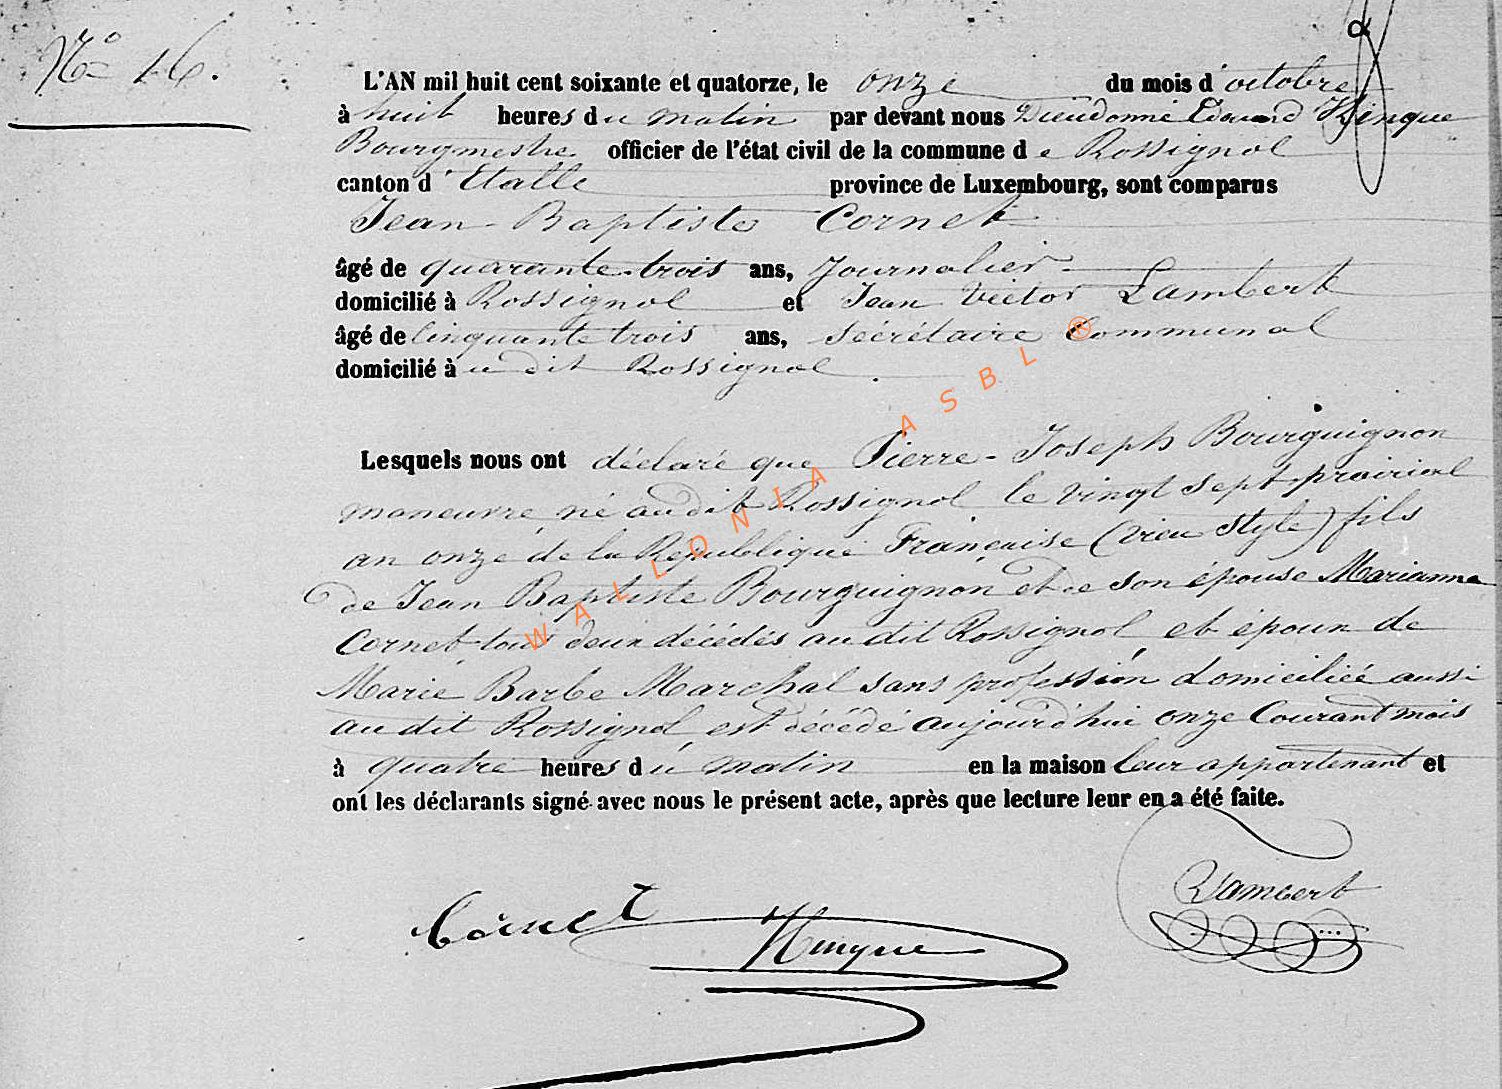 No 16.
L'AN mil huit cent soixante et quatorze, le onze du mois d'octobre
à huit heures du matin par devant nous Dieudonné Edouard Hinque
Bourgmestre officier de l'état civil de la commune de Rossignol
canton d'Etalle province de Luxembourg, sont comparus
Jean-Baptiste Cornet
âgé de quarante-trois ans, Journalier
domicilié à Rossignol et Jean Victor Lambert
âgé de Cinquante trois ans, Sécrétaire Communal
domicilié àu dit Rossignol
Lesquels nous ont déclaré que Pierre-Joseph Bourguignon
maneuvre, né au dit Rossignol le vingt sept prairial
an onze de la République Française (vieu style) fils
de Jean Baptiste Bourguignon et de son épouse Marianne
Cornet tous deux décédés au dit Rossignol, et époux de
Marie Barbe Marchal sans profession domiciliée aussi
au dit Rossignol, est décédé aujourd'hui onze Courant mois
à quatre heures du matin en la maison leur appartenant et
ont les déclarants signé avec nous le présent acte, après que lecture leur en a été faite.
Cornet Hinque Lambert
WALLONIA ASBL ®